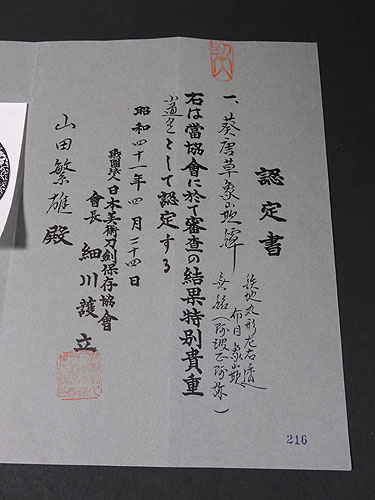 認定書
一、葵唐草象嵌鐔
鉄地丸形左右透
布目象嵌
無銘(阿波正阿弥)
右は當協會に於て審査の結果特別貴重
小道具として認定する
昭和四十一年四月二十四日
財団法人日本美術刀剣保存協會
會長 細川護立
山田繁雄殿
216